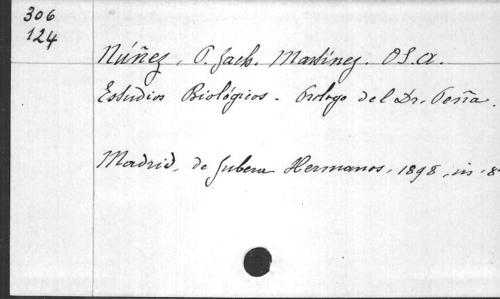 306
124
Núñez, P. Zach. Martínez. O.S.A.
Estudios Biológicos. Prologo del Dr. Peña.
Madrid, de Jubera Hermanos, 1898, in 8